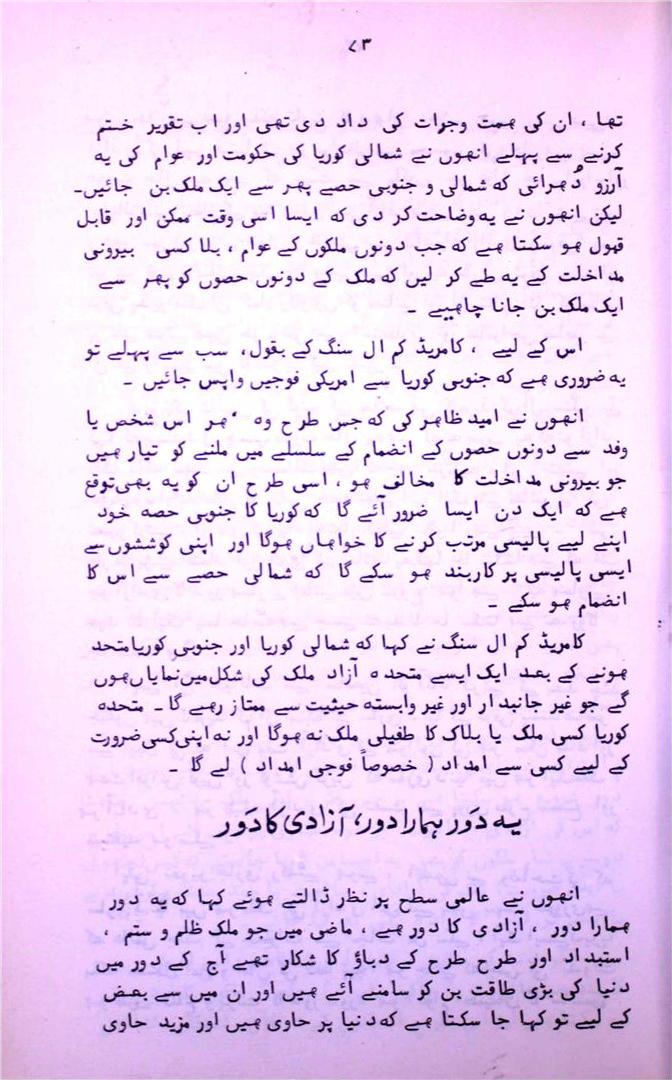 ۷۳
تھا ، ان کی ھمت وجرات کی داد دی تھی اور اب تقویر ختم
کرنے سے پہلے انھوں نے شمالی کوریا کی حکومت اور عوام کی یہ
آرزو دُھرائی کہ شمالی و جنوبی حصے پھر سے ایک ملک بن جائیں۔
لیکن انھوں نے یہ وضاحت کر دی کہ ایسا اسی وقت ممکن اور قابل
قبول ھو سکتا ھے کہ جب دونوں ملکوں کے عوام ، بلا کسی بیرونی
مداخلت کے یہ طے کر لیں کہ ملک کے دونوں حصوں کو پھر سے
ایک ملک بن جانا چاھیے ۔
اس کے لیے ، کامریڈ کم ال سنگ کے بقول، سب سے پہلے تو
یہ ضروری ھے کہ جنوبی کوریا سے امریکی فوجیں واپس جائیں ۔
انھوں نے امید ظاھر کی کہ جس طرح وہ ھر اس شخص یا
وفد سے دونوں حصوں کے انضمام کے سلسلے میں ملنے کو تیار ھیں
جو بیرونی مداخلت کا مخالف ھو ، اسی طرح ان کو یہ بھی توقع
ھے کہ ایک دن ایسا ضرور آئے گا کہ کوریا کا جنوبی حصہ خود
اپنے لیے پالیسی مرتب کرنے کا خواھاں ھوگا اور اپنی کوششوں سے
ایسی پالیسی پر کاربند ھو سکے گا کہ شمالی حصے سے اس کا
انضمام ھو سکے ۔
کامریڈ کم ال سنگ نے کہا کہ شمالی کوریا اور جنوبی کوریا متحد
ھونے کے بعد ایک ایسے متحدہ آزاد ملک کی شکل میں نمایاں ھوں
گے جو غیر جانبدار اور غیر وابستہ حیثیت سے ممتاز رھے گا ۔ متحدہ
کوریا کسی ملک یا بلاک کا طفیلی ملک نہ ھوگا اور نہ اپنی کسی ضرورت
کے لیے کسی سے امداد ( خصوصاً فوجی امداد ) لے گا ۔
یہ دَور ہمارا دور، آزادی کا دَور
انھوں نے عالمی سطح پر نظر ڈالتے ھوئے کہا کہ یہ دور
ھمارا دور ، آزادی کا دور ھے ، ماضی میں جو ملک ظلم و ستم ،
استبداد اور طرح طرح کے دباؤ کا شکار تھے آج کے دور میں
دنیا کی بڑی طاقت بن کو سامنے آئے ھیں اور ان میں سے بعض
کے لیے تو کہا جا سکتا ھے کہ دنیا پر حاوی ھیں اور مزید حاوی